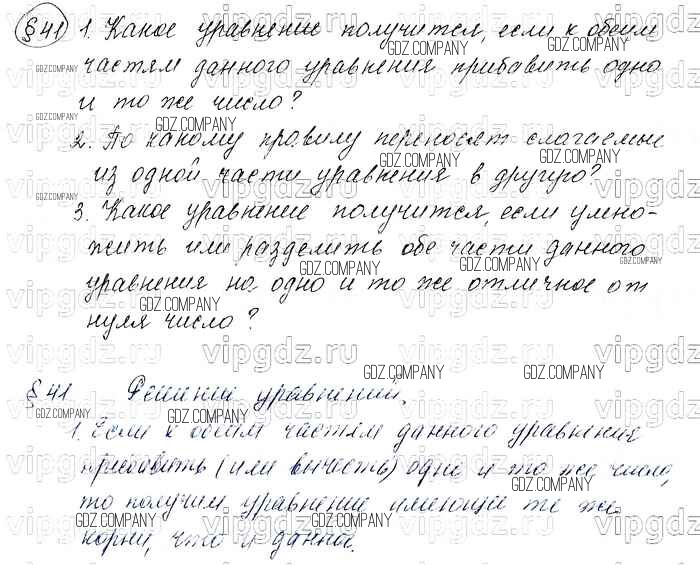 §41 1. Какое уравнение получится, если к обеим
частям данного уравнения прибавить одно
и то же число?
2. По какому правилу переносят слагаемые
из одной части уравнения в другую?
3. Какое уравнение получится, если умно-
жить или разделить обе части данного
уравнения на одно и то же отличное от
нуля число?
§41 Решение уравнений.
1. Если к обеим частям данного уравнения
прибавить (или вычесть) одно и то же число,
то получим уравнение имеющее те же
корни, что и данное.